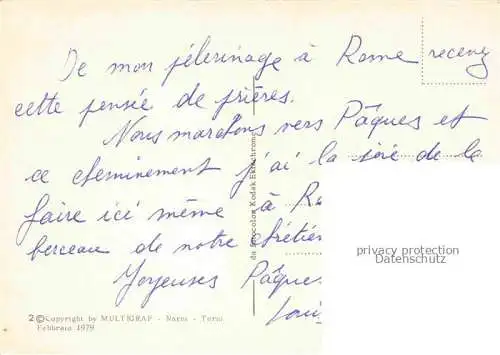 De mon pélerinage à Rome recevez
cette pensée de prières.
Nous marchons vers Pâques et
ce cheminement j'ai la joie de le
faire ici même à
berceau de notre
Joyeuses Pâques
privacy protection
Datenschutz
da fotocolor Kodak Ektachrome
2 © Copyright by MULTIGRAF - Narni - Terni
Febbraio 1979